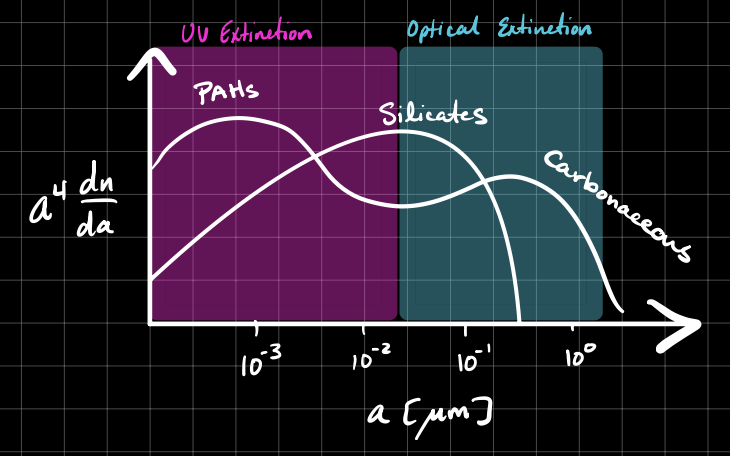 UV Extinction
Optical Extinction
PAHs
Silicates
Carbonaceous
a⁴ dn/da
10⁻³
10⁻²
10⁻¹
10⁰
a [μm]